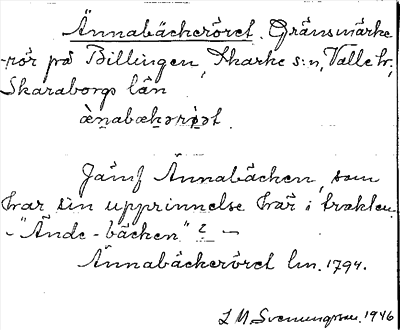 Ännabäckeröret. Gränsmärke
-rör på Billingen, Skarke s:n, Valle hd,
Skaraborgs län
ànabækərø̀ət.
Jämf Ännabäcken, som
har sin upprinnelse här i trakten.
- "Ände-bäcken" ? -
Ännabäckeröret lm. 1794.
S M Svenungsson. 1946